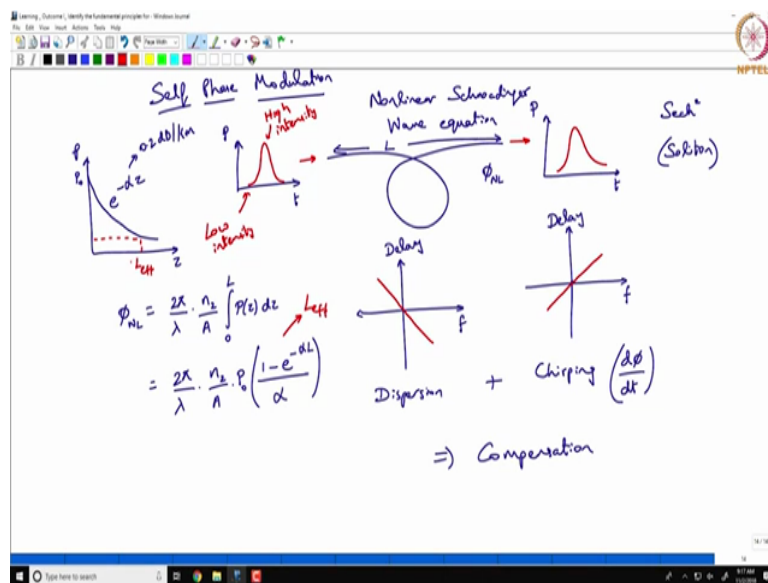 Learning _ Outcome I_ Identify the fundamental principles for - Windows Journal
File Edit View Insert Actions Tools Help
Page Width
B I
NPTEL
Self Phase Modulation
Nonlinear Schroedinger
Wave equation
Sech²
(Soliton)
0.2 dB/km
P
P₀
e^{-αz}
L_eff
z
High
intensity
P
t
Low
intensity
L
ϕ_NL
P
t
ϕ_NL = 2π/λ · n₂/A ∫₀^L P(z) dz
L_eff
= 2π/λ · n₂/A · P₀ ((1-e^{-αL})/α)
Delay
f
Dispersion
+
Delay
f
Chirping (dϕ/dt)
=) Compensation
14 / 14
14
Type here to search
9:17 AM